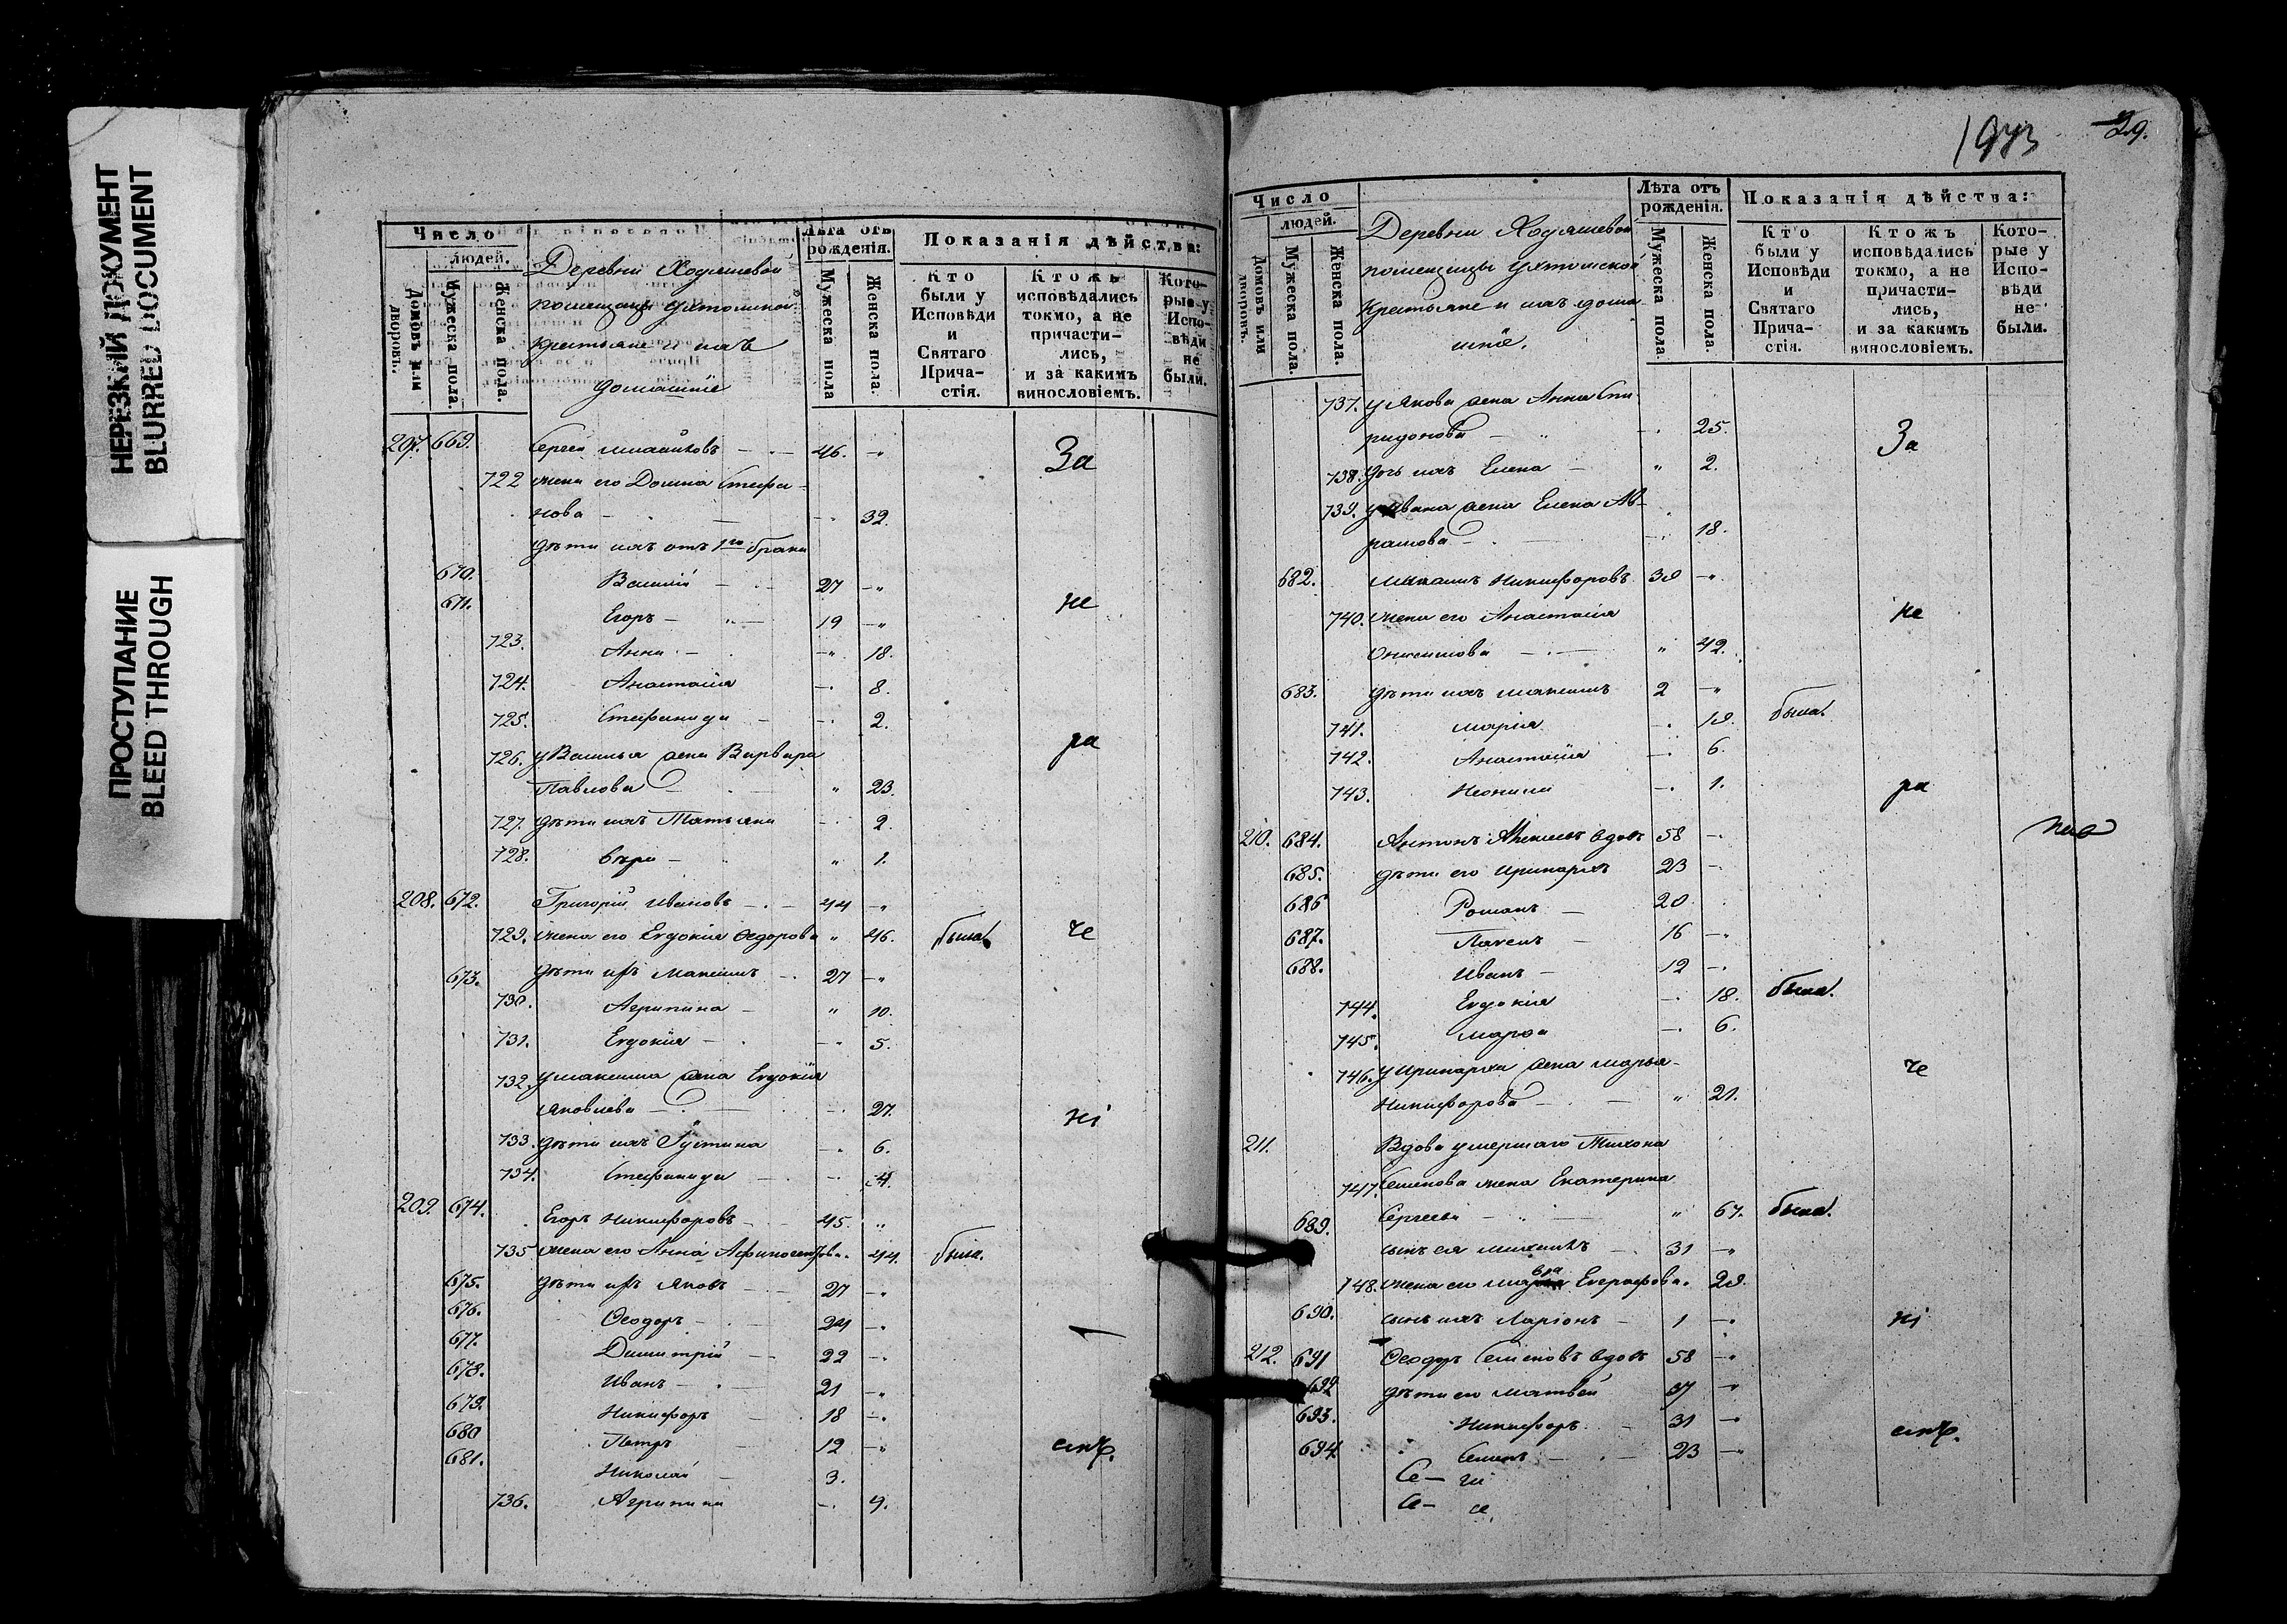 НЕРЕЗКИЙ ДОКУМЕНТ
BLURRED DOCUMENT
ПРОСТУПАНИЕ
BLEED THROUGH
Число
людей.
Домовъ или дворовъ.
Мужеска пола.
Женска пола.
Деревни Ходяшевой
помещицы Ухтомской
крестьяне и ихъ
домашніе
Лѣта отъ рожденія.
Мужеска пола
Женска пола.
Показанія дѣйства:
Кто были у Исповѣди и Святаго Прича-стія.
Ктожъ исповѣдались токмо, а не причасти-лись, и за какимъ винословіемъ.
Кото-рые у Испо-вѣди не были.
207. 669. Сергей 46. За
722 жена его Домна Стефа-
нова 32.
дѣти ихъ от 1го брака
670. Василій 27
671. Егоръ 19 не
723. Анна 18.
724. Анастасія 8.
725. Стефанида 2.
726. у Василья жена Варвара ра
Павлова 23.
727. дѣти ихъ Татьяна 2.
728. Вера 1.
208. 672. Григорій Ивановъ 44
729. жена его Евдокія Ѳедорова 46. была. че
673. дѣти ихъ Максимъ 27
730. Агрипина 10.
731. Евдокія 5.
732. у Максима жена Евдокія
Яковлева 27. ні
733. дѣти ихъ Устина 6.
734. Стефанида 4.
209. 674. Егоръ Никифоровъ 45.
735 жена его Анна Афиногенова. 44. была.
675. дѣти ихъ Яковъ 27
676. Ѳеодоръ 24
677. Димитрій 22
678. Иванъ 21
679. Никифоръ 18
680 Петръ 12
681. Николай 3.
736. Агрипина 9.
1973 29.
Число
людей.
Домовъ или дворовъ.
Мужеска пола.
Женска пола.
Деревни Ходяшевой
помещицы Ухтомской
Крестьяне и ихъ дома
шніе.
Лѣта отъ рожденія.
Мужеска пола.
Женска пола.
Показанія дѣйства:
Кто были у Исповѣди и Святаго Прича-стія.
Ктожъ исповѣдались токмо, а не причасти-лись, и за какимъ винословіемъ.
Кото-рые у Испо-вѣди не были.
737. у Якова жена Анна Спи-
ридонова 25. За
738. дочь ихъ Елена 2.
739. у Ивана жена Елена Ав-
рамова 18.
682. Никифоровъ 39
740. жена его Анастасія не
Онисимова 42.
683. дѣти ихъ Максимъ 2
741. Марія 19. была.
742. Анастасія 6.
743. Неонила 1. ра
210. 684. Антонъ вдовъ 58
685. дѣти его Иринархъ 23
686 Романъ 20
687. 16
688. Иванъ 12
744. Евдокія 18. была.
745. Марѳа 6.
746. у Иринарха жена Марья че
Никифорова 21.
211. Вдова умершаго Тихона
747. Семенова жена Екатерина
Сергеева 67. была.
689. сынъ ея Михаилъ 31
748. жена его Евграфова. 29.
690. сынъ ихъ Ларіонъ 1 ні
212. 691 Ѳеодоръ Семеновъ вдовъ 58
692 дѣти его Матвѣй 37
693. Никифоръ 31
694 Семенъ 23